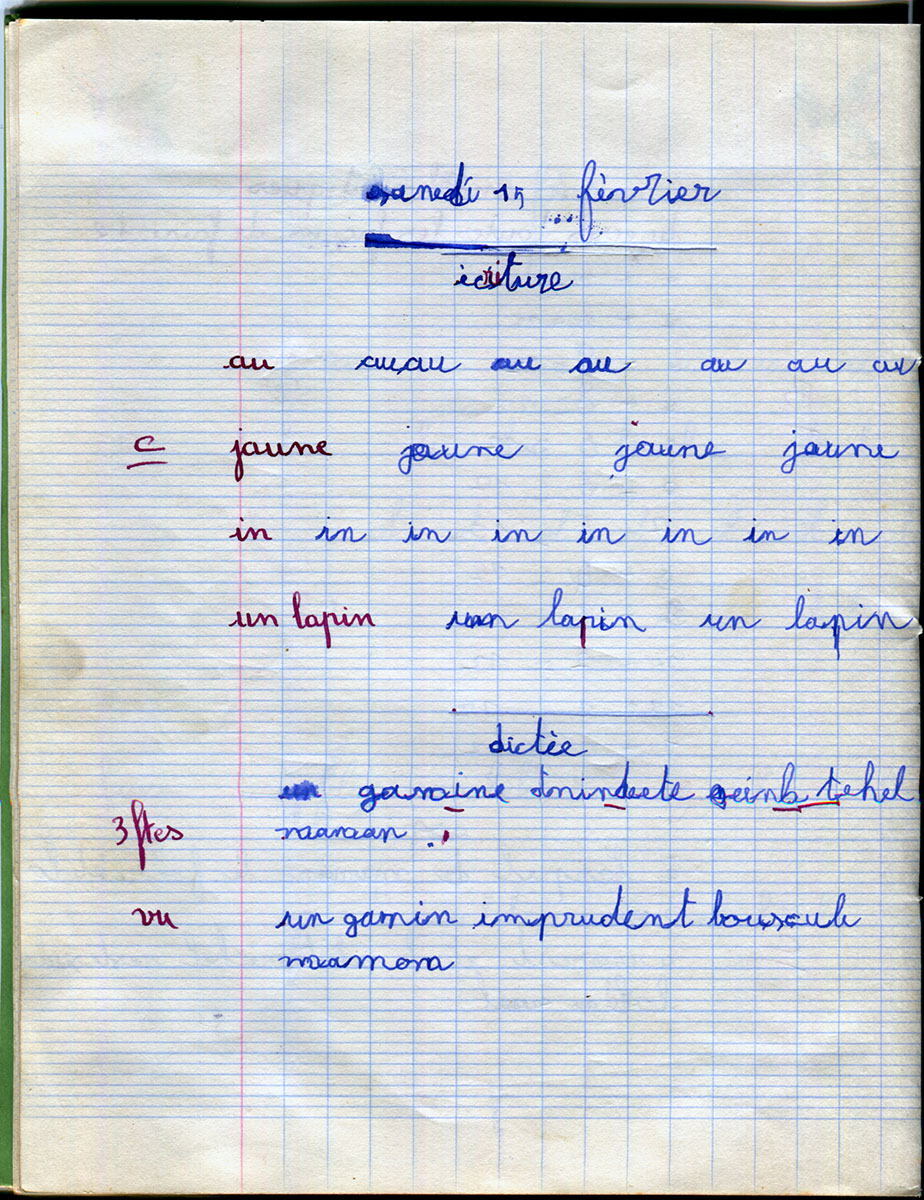 samedi 15 février
écriture
au auau au au au au au
c jaune jaune jaune jaune
in in in in in in in in
un lapin un lapin un lapin
dictée
un
3 ftes maman.
vu un gamin imprudent bouscule
maaman